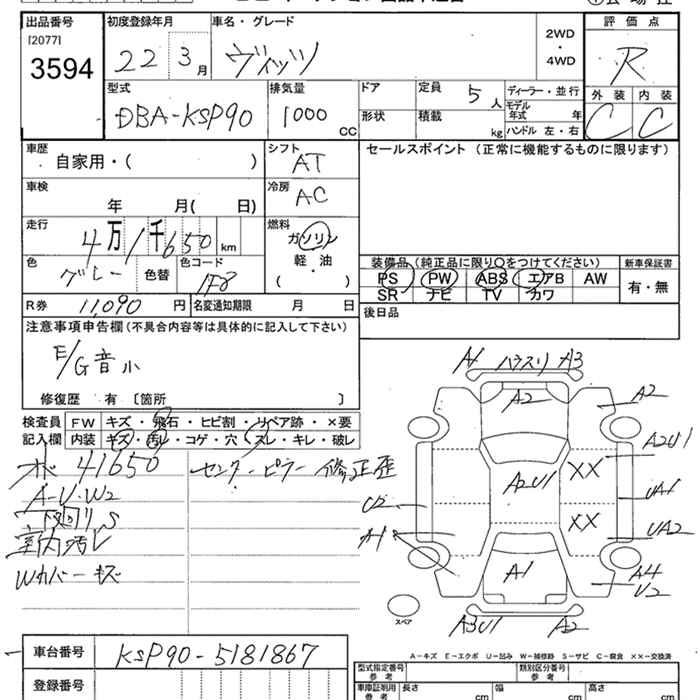 出品番号 初度登録年月 車名・グレード 評価点
[2077]
3594
22 3月 ヴィッツ 2WD・4WD R
型式 排気量 ドア 定員 5人 ディーラー・並行 外装 内装
DBA-KSP90 1000cc 形状 積載 kg モデル年式 年 C C
ハンドル 左・右
車歴 シフト セールスポイント (正常に機能するものに限ります)
自家用・( ) AT
車検 冷房
年 月( 日) AC
走行 燃料
4万1千650km ガソリン
軽・油
( )
色 色コード 装備品 (純正品に限り○をつけてください) 新車保証書
グレー 色替 1F8 PS PW ABS エアB AW 有・無
SR ナビ TV カワ
R券 11,090円 名変通知期限 月 日 後日品
注意事項申告欄 (不具合内容等は具体的に記入して下さい)
E/G音小
修復歴 有 〔箇所 〕
検査員 FW キズ・飛石・ヒビ割・リペア跡・×要
記入欄 内装 キズ・汚レ・コゲ・穴・スレ・キレ・破レ
A1 ハウスリ A3
A2 A2
A2U1
A2U1 XX
UA1
U2 XX UA2
A1
A1 A4
U2
スペア A3U1 A2
41650 センターピラー 修正歪
A-U・W2
下回リS
室内汚レ
Wカバーキズ
A-キズ E-エクボ U-凹み W-補修跡 S-サビ C-腐食 ××-交換済
車台番号 KSP90-5181867
型式指定番号 類別区分番号
登録番号
車庫証明用参考 長さ cm 幅 cm 高さ cm